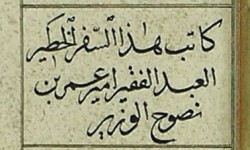 كاتب هذا السفر الخطير
العبد الفقير امير عمر بن
نصوح الوزير